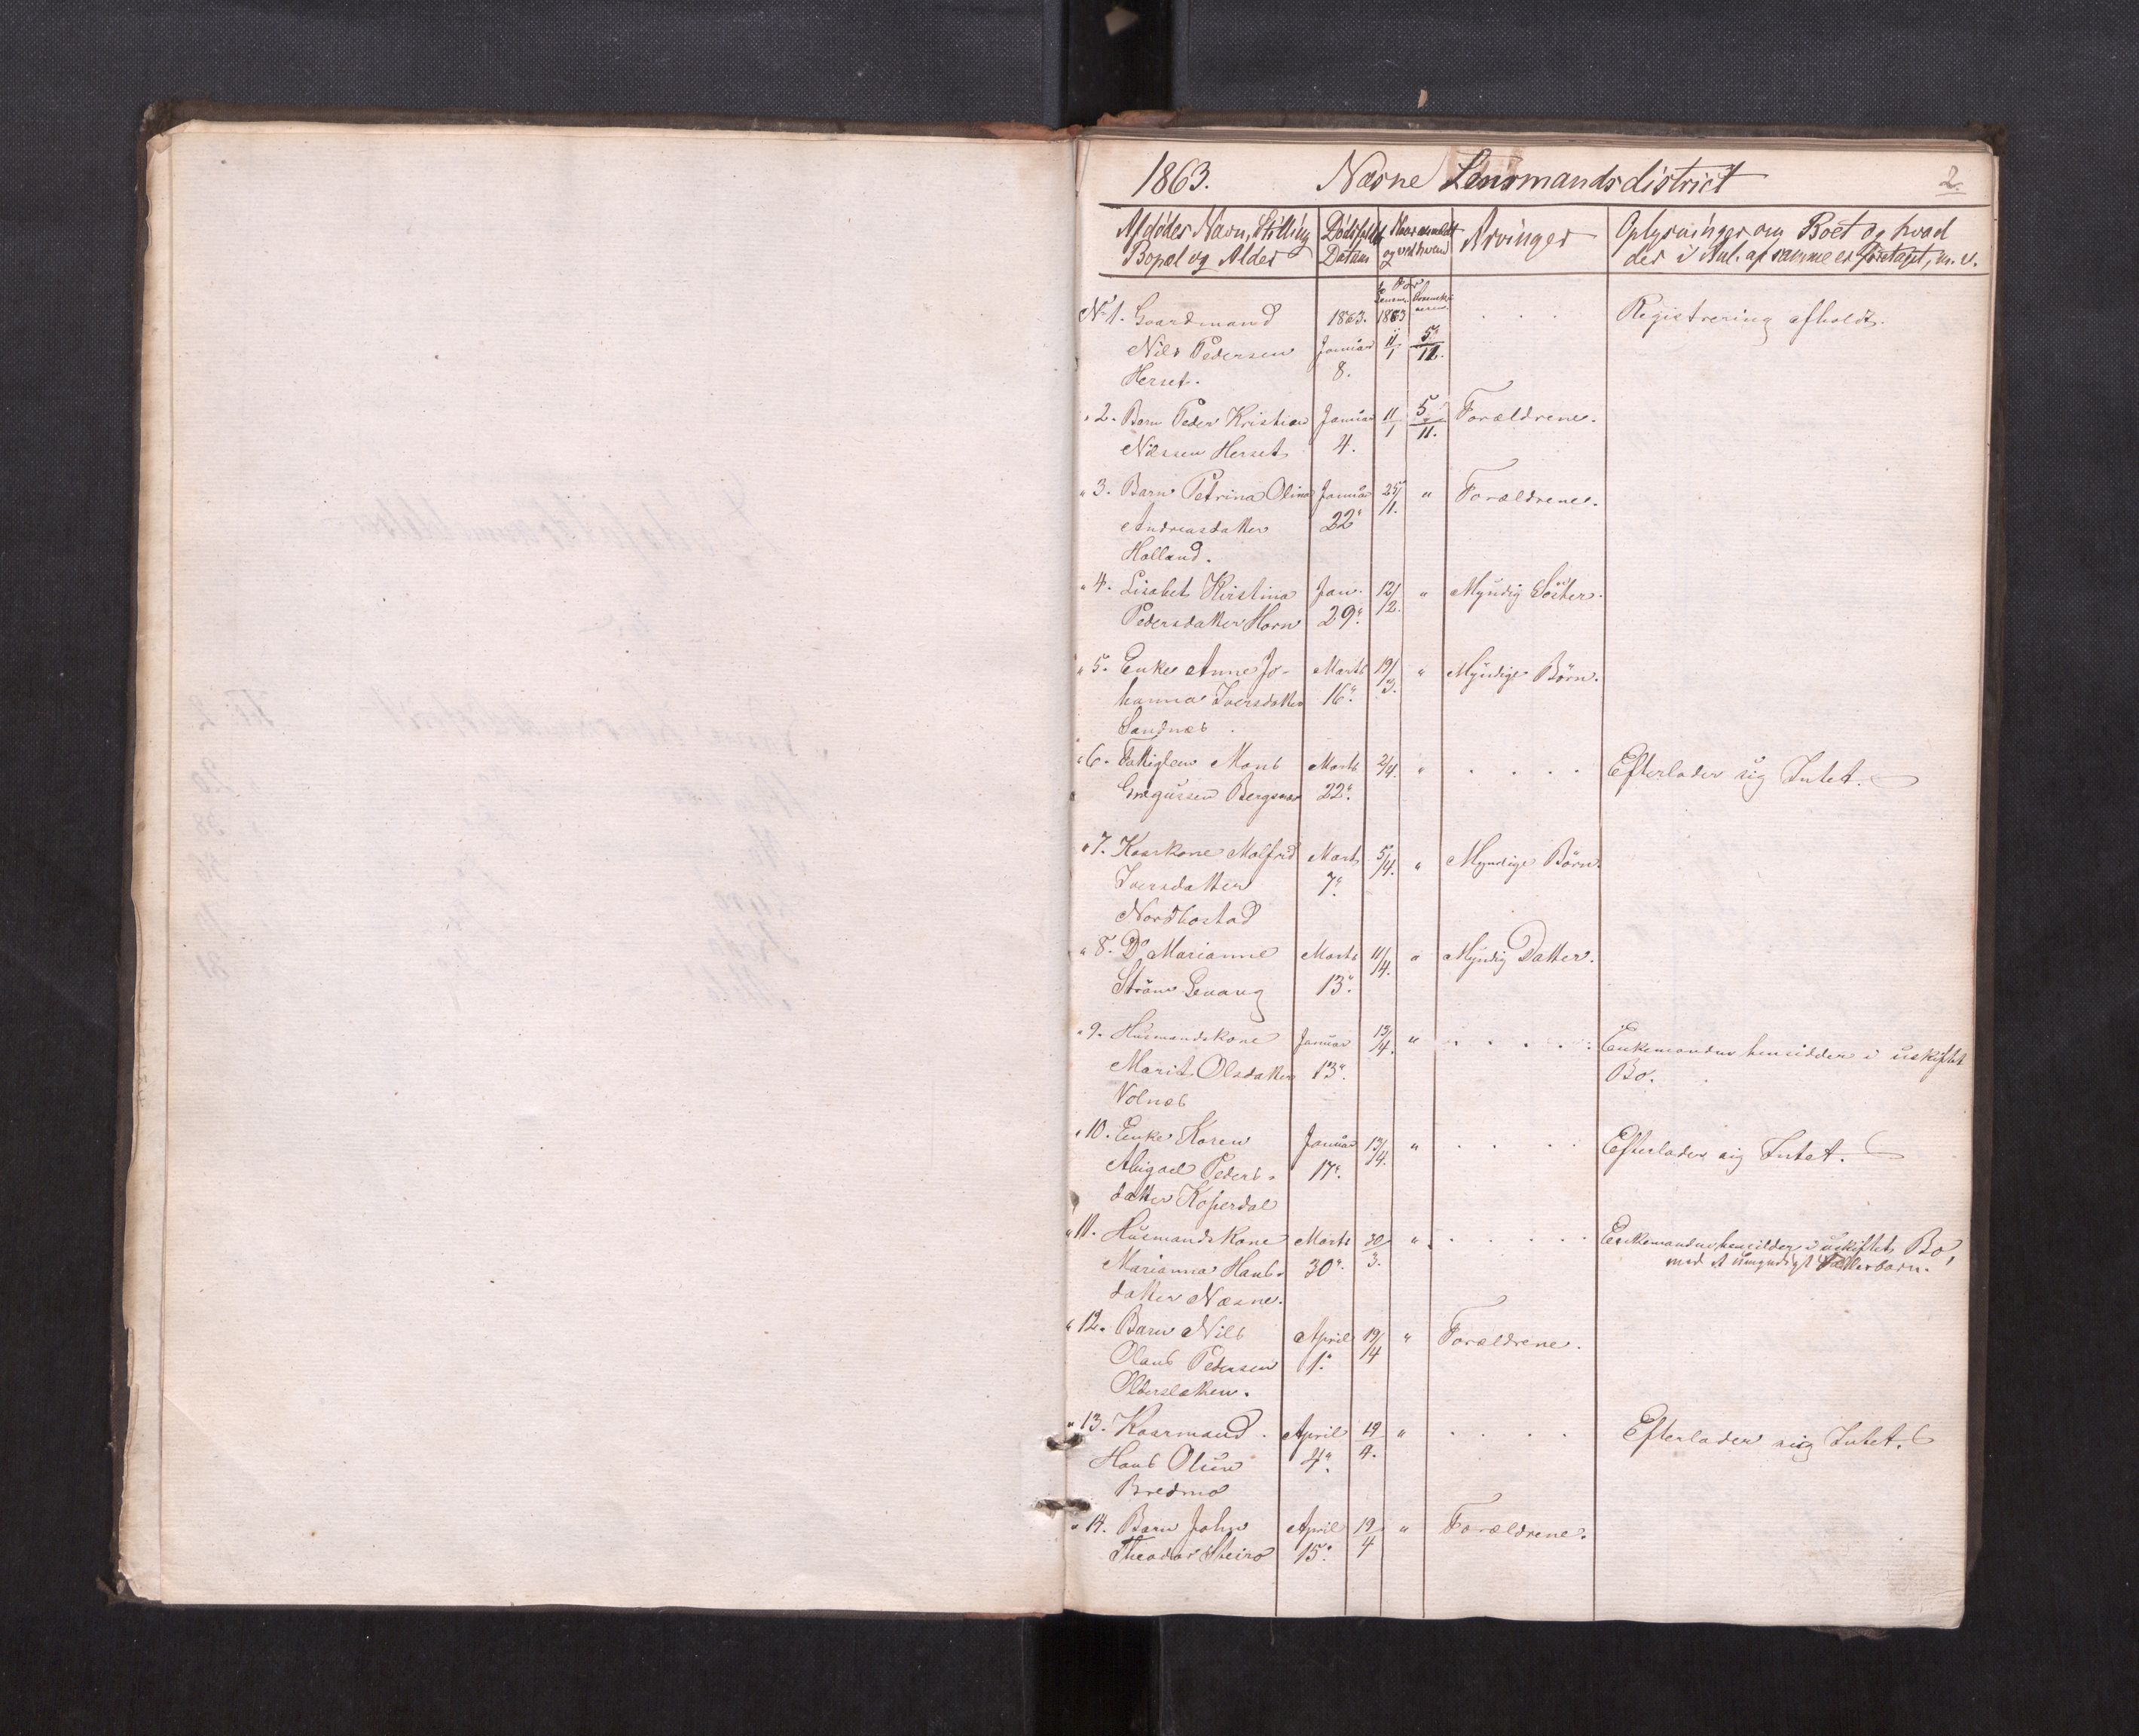 1863. Næsne Lensmandsdistrict 2.
Afdødes Navn, Stilling Dødsfaldets Naar anmeldt Arvinger Oplysninger om Boet og hvad
Bopæl og Alder Datum og ved hvem der i Anl. af samme er foretaget, m. v.
No 1. Gaardmand 1863. 1863 . . . Registrering afholdt.
Nils Pedersen Januar 11/1 5/11.
Herset. 8.
" 2. Barn Peder Kristian Januar 11/1 5/11. Forældrene.
Nilssen Herset 4.
" 3. Barn Petrina Olina Januar 25/1. " Forældrene.
Andreasdatter 22
Holland.
" 4. Lisabet Kirstina Jan. 12/2. " Myndig Søster.
Pedersdatter Horn 29.
" 5. Enke Anne Jo- Marts 19/3. " Myndige Børn.
hanna Iversdatter 16.
Sandnes
" 6. Fattiglem Mons Marts 2/4. " . . . . Efterlader sig Intet.
Gregussen Bergsnes 22.
" 7. Kaarkone Malfrid Marts 5/4. " Myndige Børn.
Iversdatter 7.
Nordbostad
" 8. Do Marianne Marts 11/4. " Myndig Datter.
Strøm Levang 13.
" 9. Husmandskone Januar 13/4. " . . . . Enkemanden hensidder i uskiftet
Marit Olsdatter 13. Bo.
Volnes
" 10. Enke Karen Januar 13/4. " . . . Efterlader sig Intet.
Abigael Peders- 17.
datter Koperdal
" 11. Husmandskone Marts 30/3. " . . . . Enkemanden hensidder i uskiftet Bo,
Marianna Hans- 30. med et umyndigt Fællesbarn.
datter Næsne.
" 12. Barn Nils April 19/4 " Forældrene.
Olaus Pedersen 1.
" 13. Kaarmand April 19/4. " . . . . Efterlader sig Intet.
Hans Olsen 4.
Bredmo
" 14. Barn John April 19/4 " Forældrene.
Theodor Steiro 15.